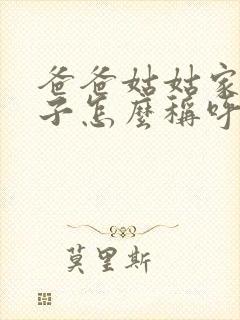 爸爸姑姑家
子怎麼稱呼
莫里斯